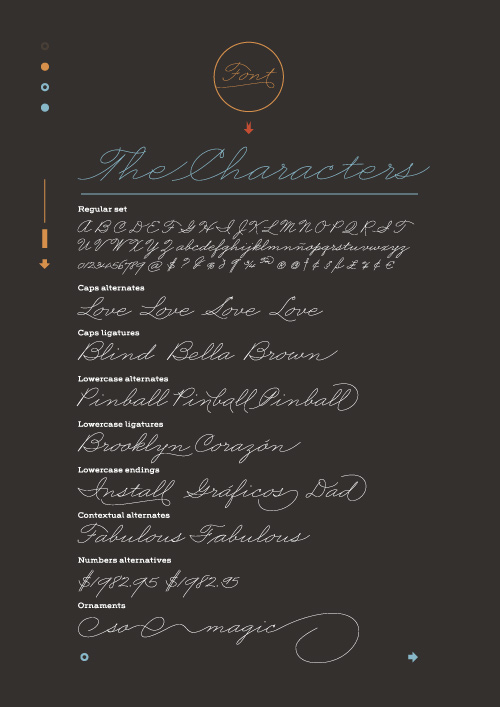 Font
The Characters
Regular set
A B C D E F G H I J K L M N O P Q R S T
U V W X Y Z abcdefghijklmnñopqrstuvwxyz
0123456789 @ $ ? &
Caps alternates
Love Love Love Love
Caps ligatures
Blind Bella Brown
Lowercase alternates
Pinball Pinball Pinball
Lowercase ligatures
Brooklyn Corazón
Lowercase endings
Install Gráficos Dad
Contextual alternates
Fabulous Fabulous
Numbers alternatives
$1982.95 $1982.95
Ornaments
so magic